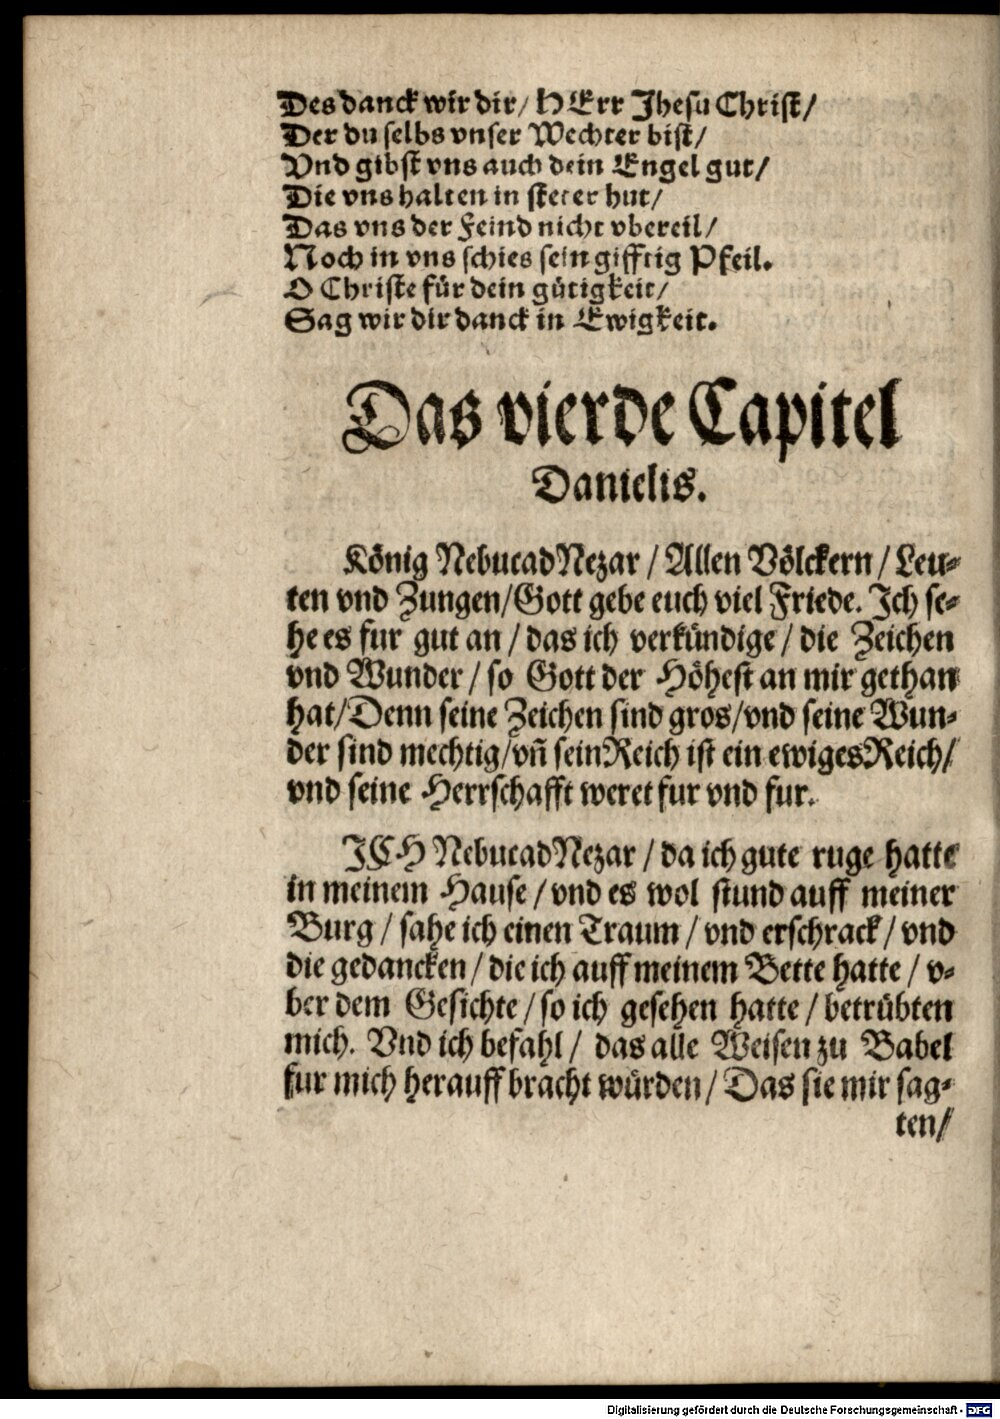 Des danck wir dir/ HErr Jhesu Christ/
Der du selbs vnser Wechter bist/
Vnd gibst vns auch dein Engel gut/
Die vns halten in steter hut/
Das vns der Feind nicht vbereil/
Noch in vns schies sein gifftig Pfeil.
O Christe für dein gütigkeit/
Sag wir dir danck in Ewigkeit.
Das vierde Capitel
Danielis.
König NebucadNezar / Allen Völckern / Leu-
ten vnd Zungen/Gott gebe euch viel Friede. Ich se-
he es fur gut an / das ich verkündige / die Zeichen
vnd Wunder / so Gott der Höhest an mir gethan
hat/Denn seine Zeichen sind gros/vnd seine Wun-
der sind mechtig/vñ sein Reich ist ein ewiges Reich/
vnd seine Herrschafft weret fur vnd fur.
ICH NebucadNezar / da ich gute ruge hatte
in meinem Hause / vnd es wol stund auff meiner
Burg / sahe ich einen Traum / vnd erschrack / vnd
die gedancken / die ich auff meinem Bette hatte / v-
ber dem Gesichte / so ich gesehen hatte / betrübten
mich. Vnd ich befahl / das alle Weisen zu Babel
fur mich herauff bracht würden / Das sie mir sag-
ten/
Digitalisierung gefördert durch die Deutsche Forschungsgemeinschaft - DFG